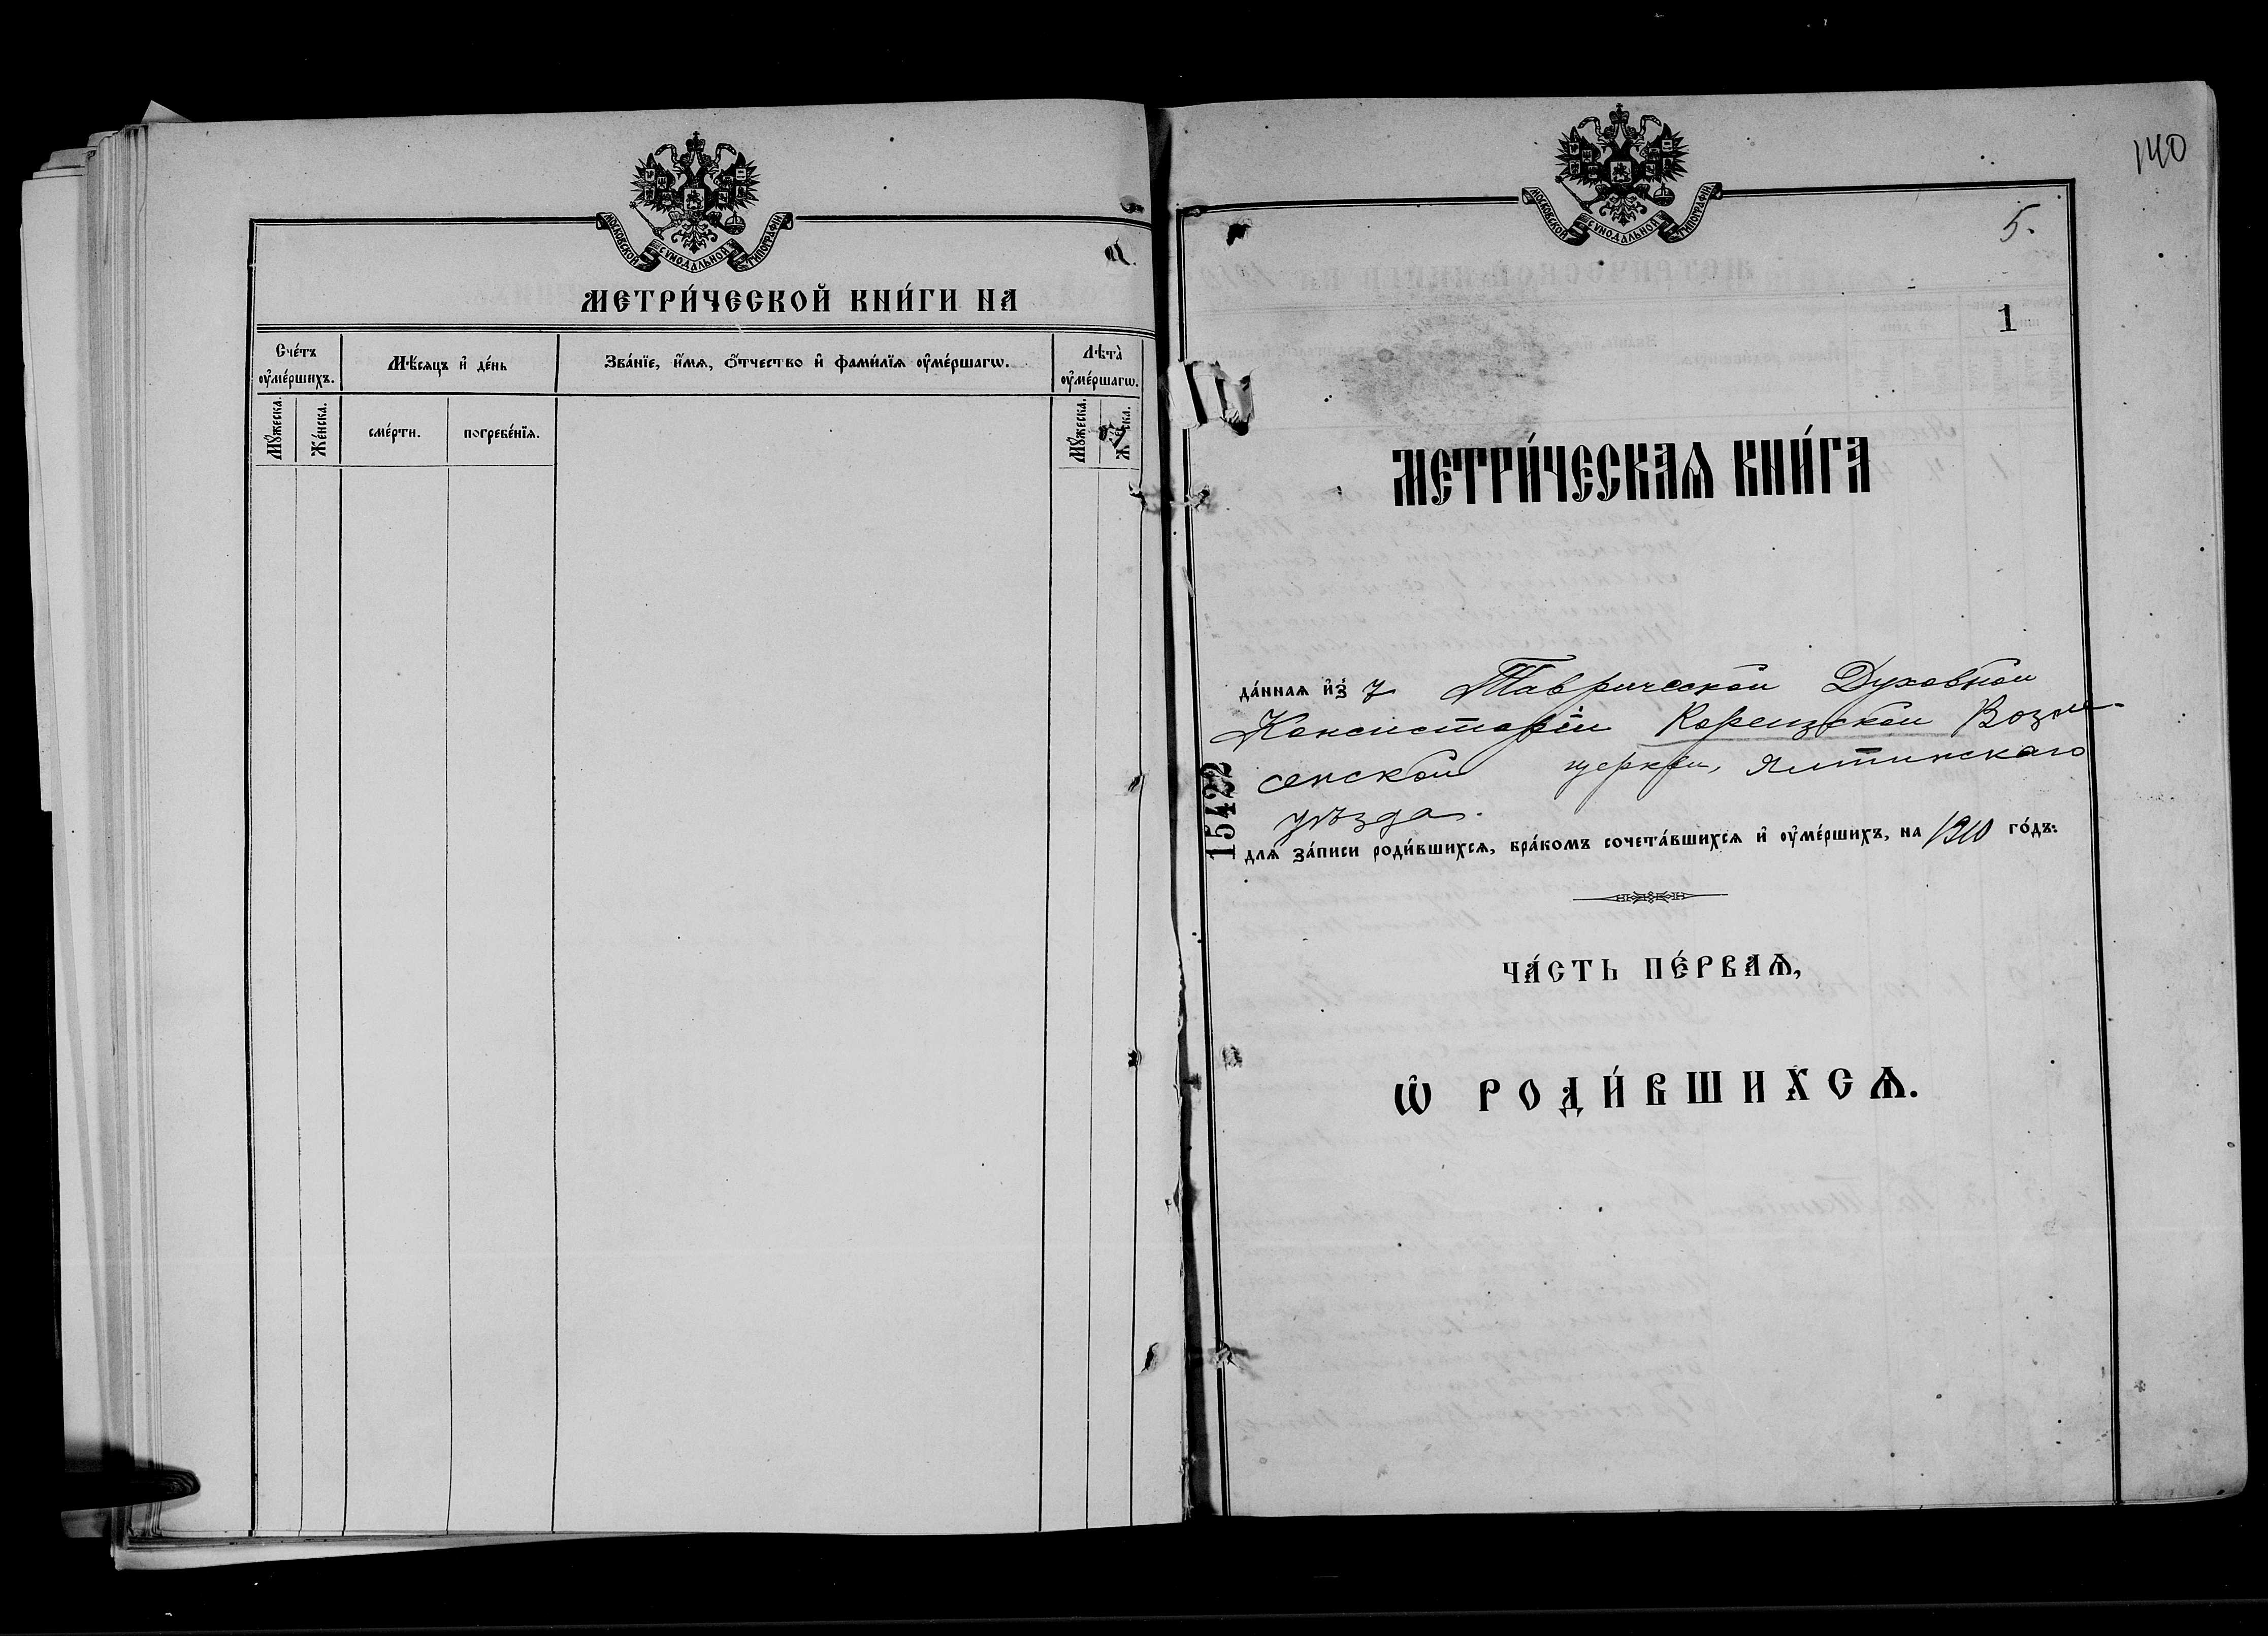 МОСКОВСКОЙ СѴНОДАЛЬНОЙ ТИПОГРАФІИ
МЕТРИ́ЧЕСКОЙ КНИ́ГИ НА
Сче́тъ ѹ҆ме́ршихъ.
Мѣ́сяцъ и҆ де́нь
Зва́нїе, и҆́мѧ, ѻ҆́тчество и҆ фами́лїѧ ѹ҆ме́ршагѡ.
Лѣта̀ ѹ҆ме́ршагѡ.
Мꙋ́жеска.
Же́нска.
сме́рти.
погребе́нїѧ.
Мꙋ́жеска.
Же́нска.
140
МОСКОВСКОЙ СѴНОДАЛЬНОЙ ТИПОГРАФІИ
5.
1
МЕТРИ́ЧЕСКАѦ КНИ́ГА
да́ннаѧ и҆зъ Таврической Духовной
Консисторіи Кореизской Возне-
сенской церкви, Ялтинскаго
уѣзда.
15422
для за́писи роди́вшихсѧ, бра́комъ сочета́вшихсѧ и҆ ѹ҆ме́ршихъ, на 1910 го́дъ:
ЧА́СТЬ ПЕ́РВАѦ,
Ѡ҆ РОДИ́ВШИХСѦ.